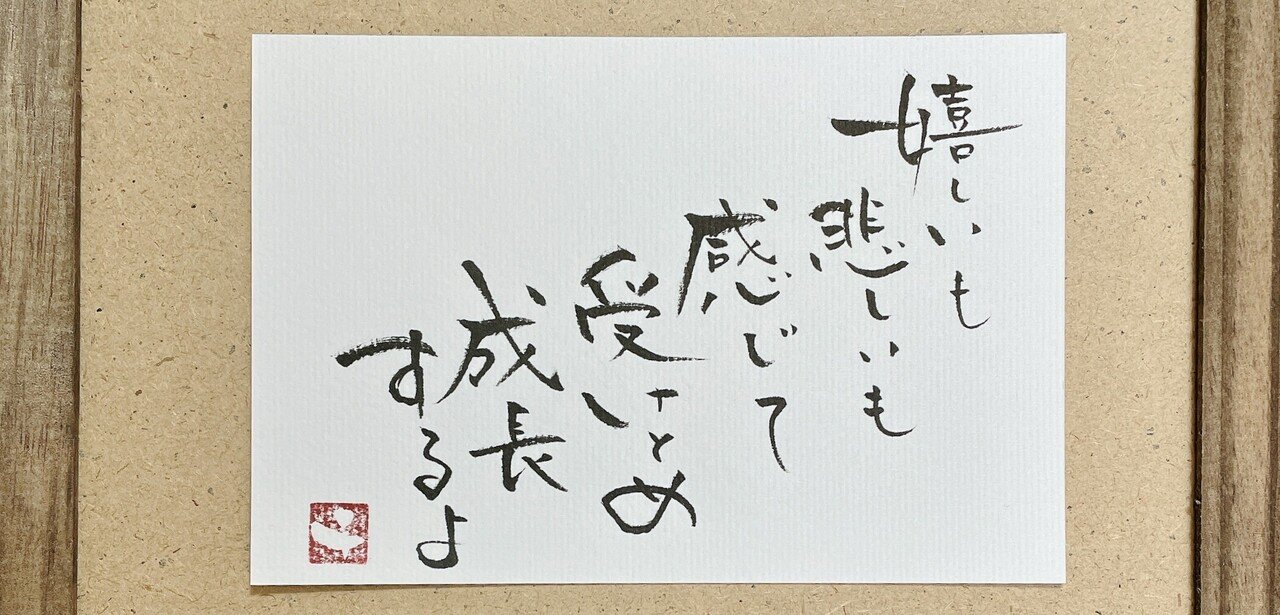 嬉しいも
悲しいも
感じて
受けとめ
成長
するよ